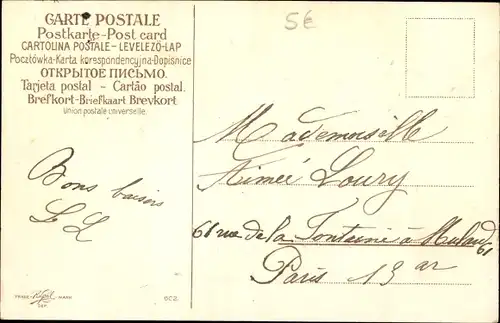 CARTE POSTALE
Postkarte-Post card
CARTOLINA POSTALE-LEVELEZŐ-LAP
Pocztówka-Karta korespondencyjna-Dopisnice
ОТКРЫТОЕ ПИСЬМО.
Tarjeta postal - Cartão postal.
Brefkort-Briefkaart Brevkort.
Union postale universelle.
5€
Mademoiselle
Aimée Loury
61 rue de la Fontaine à Mulard
61
Paris 13ar
Bons baisers
L L
TRADE MARK
DEP.
602.